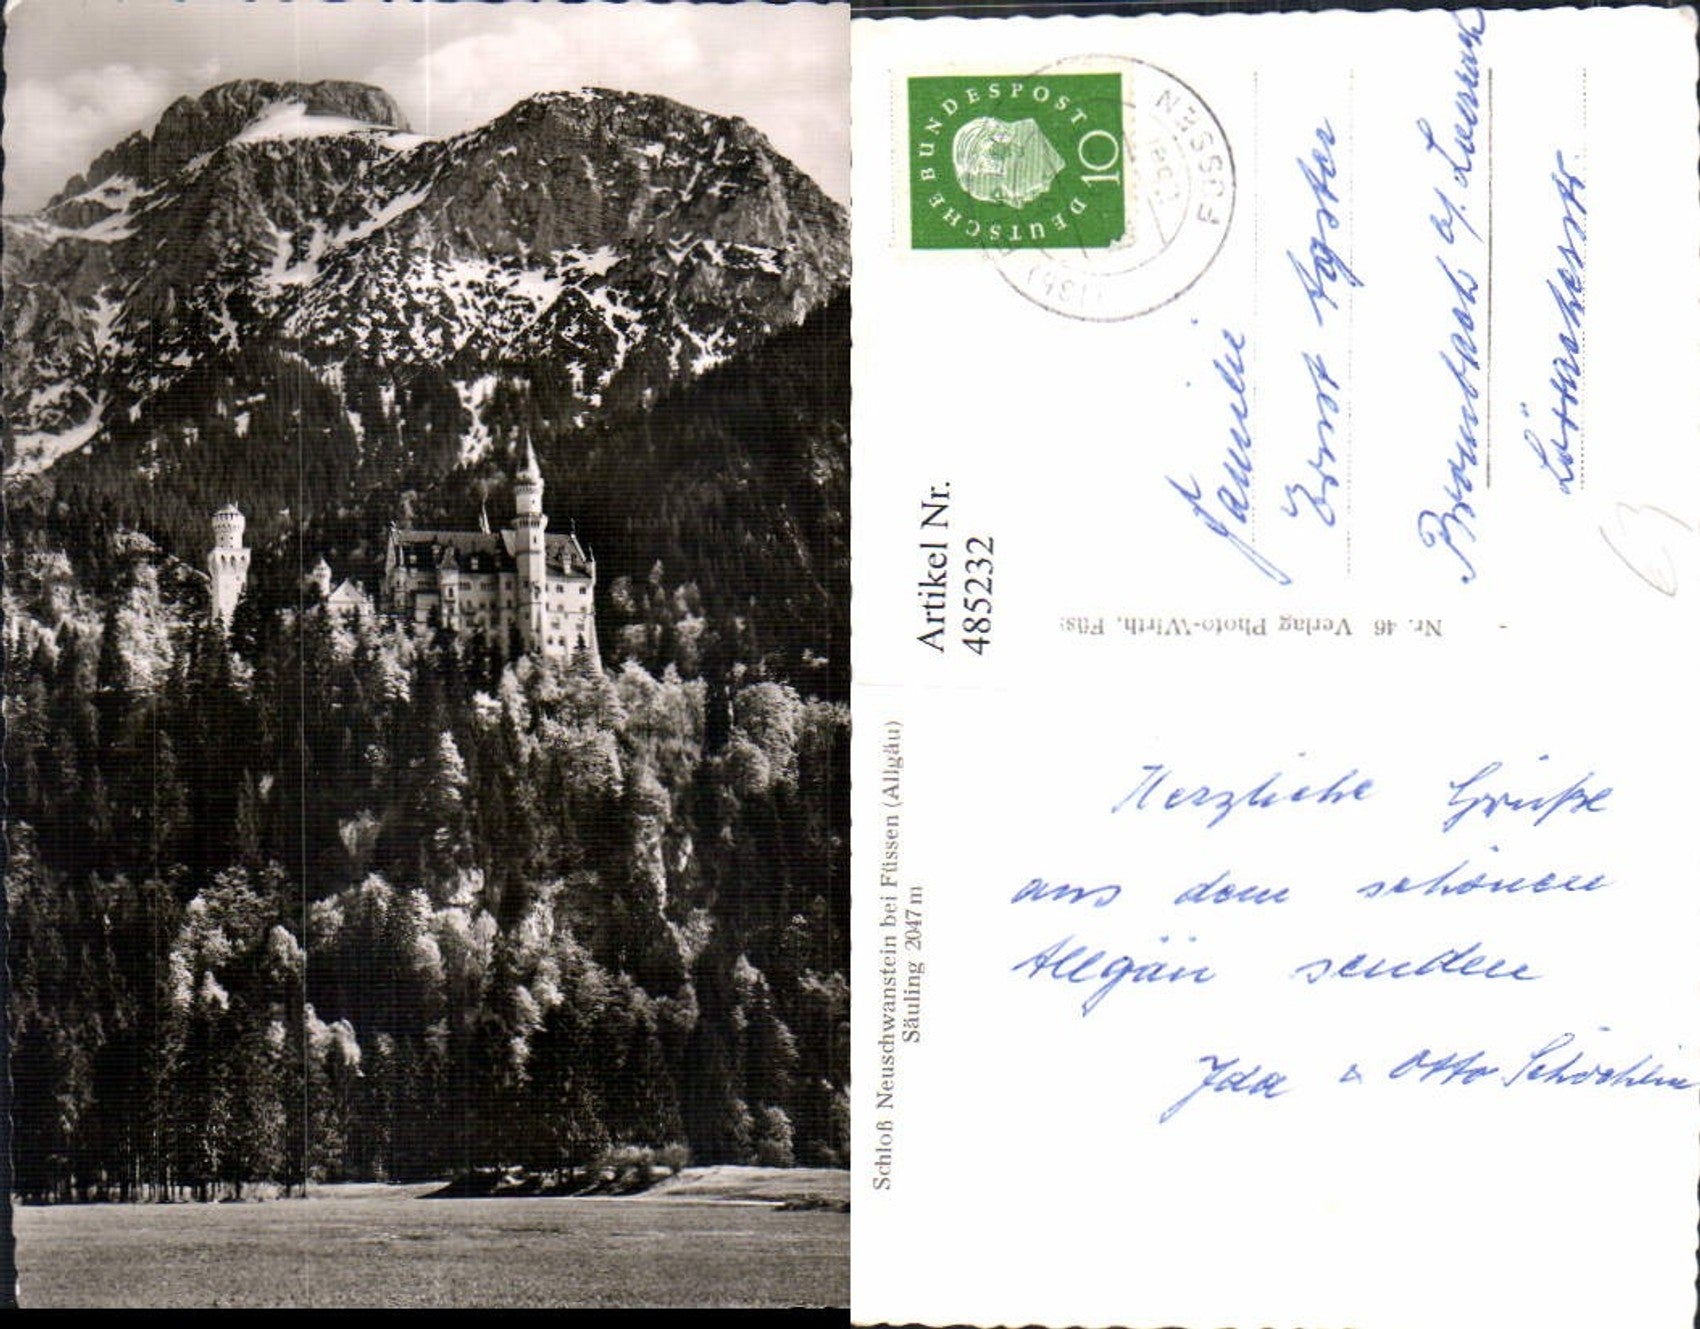 DEUTSCHE BUNDESPOST
10
FÜSSEN
Familie
Ernst Agster
Brombach b/. Lörrach
Lörracherstr.
Artikel Nr.
485232
Nr. 46 Verlag Photo-Wirth, Füs
Schloß Neuschwanstein bei Füssen (Allgäu)
Säuling 2047 m
Herzliche Grüße
aus dem schönen
Allgäu senden
Ida & Otto